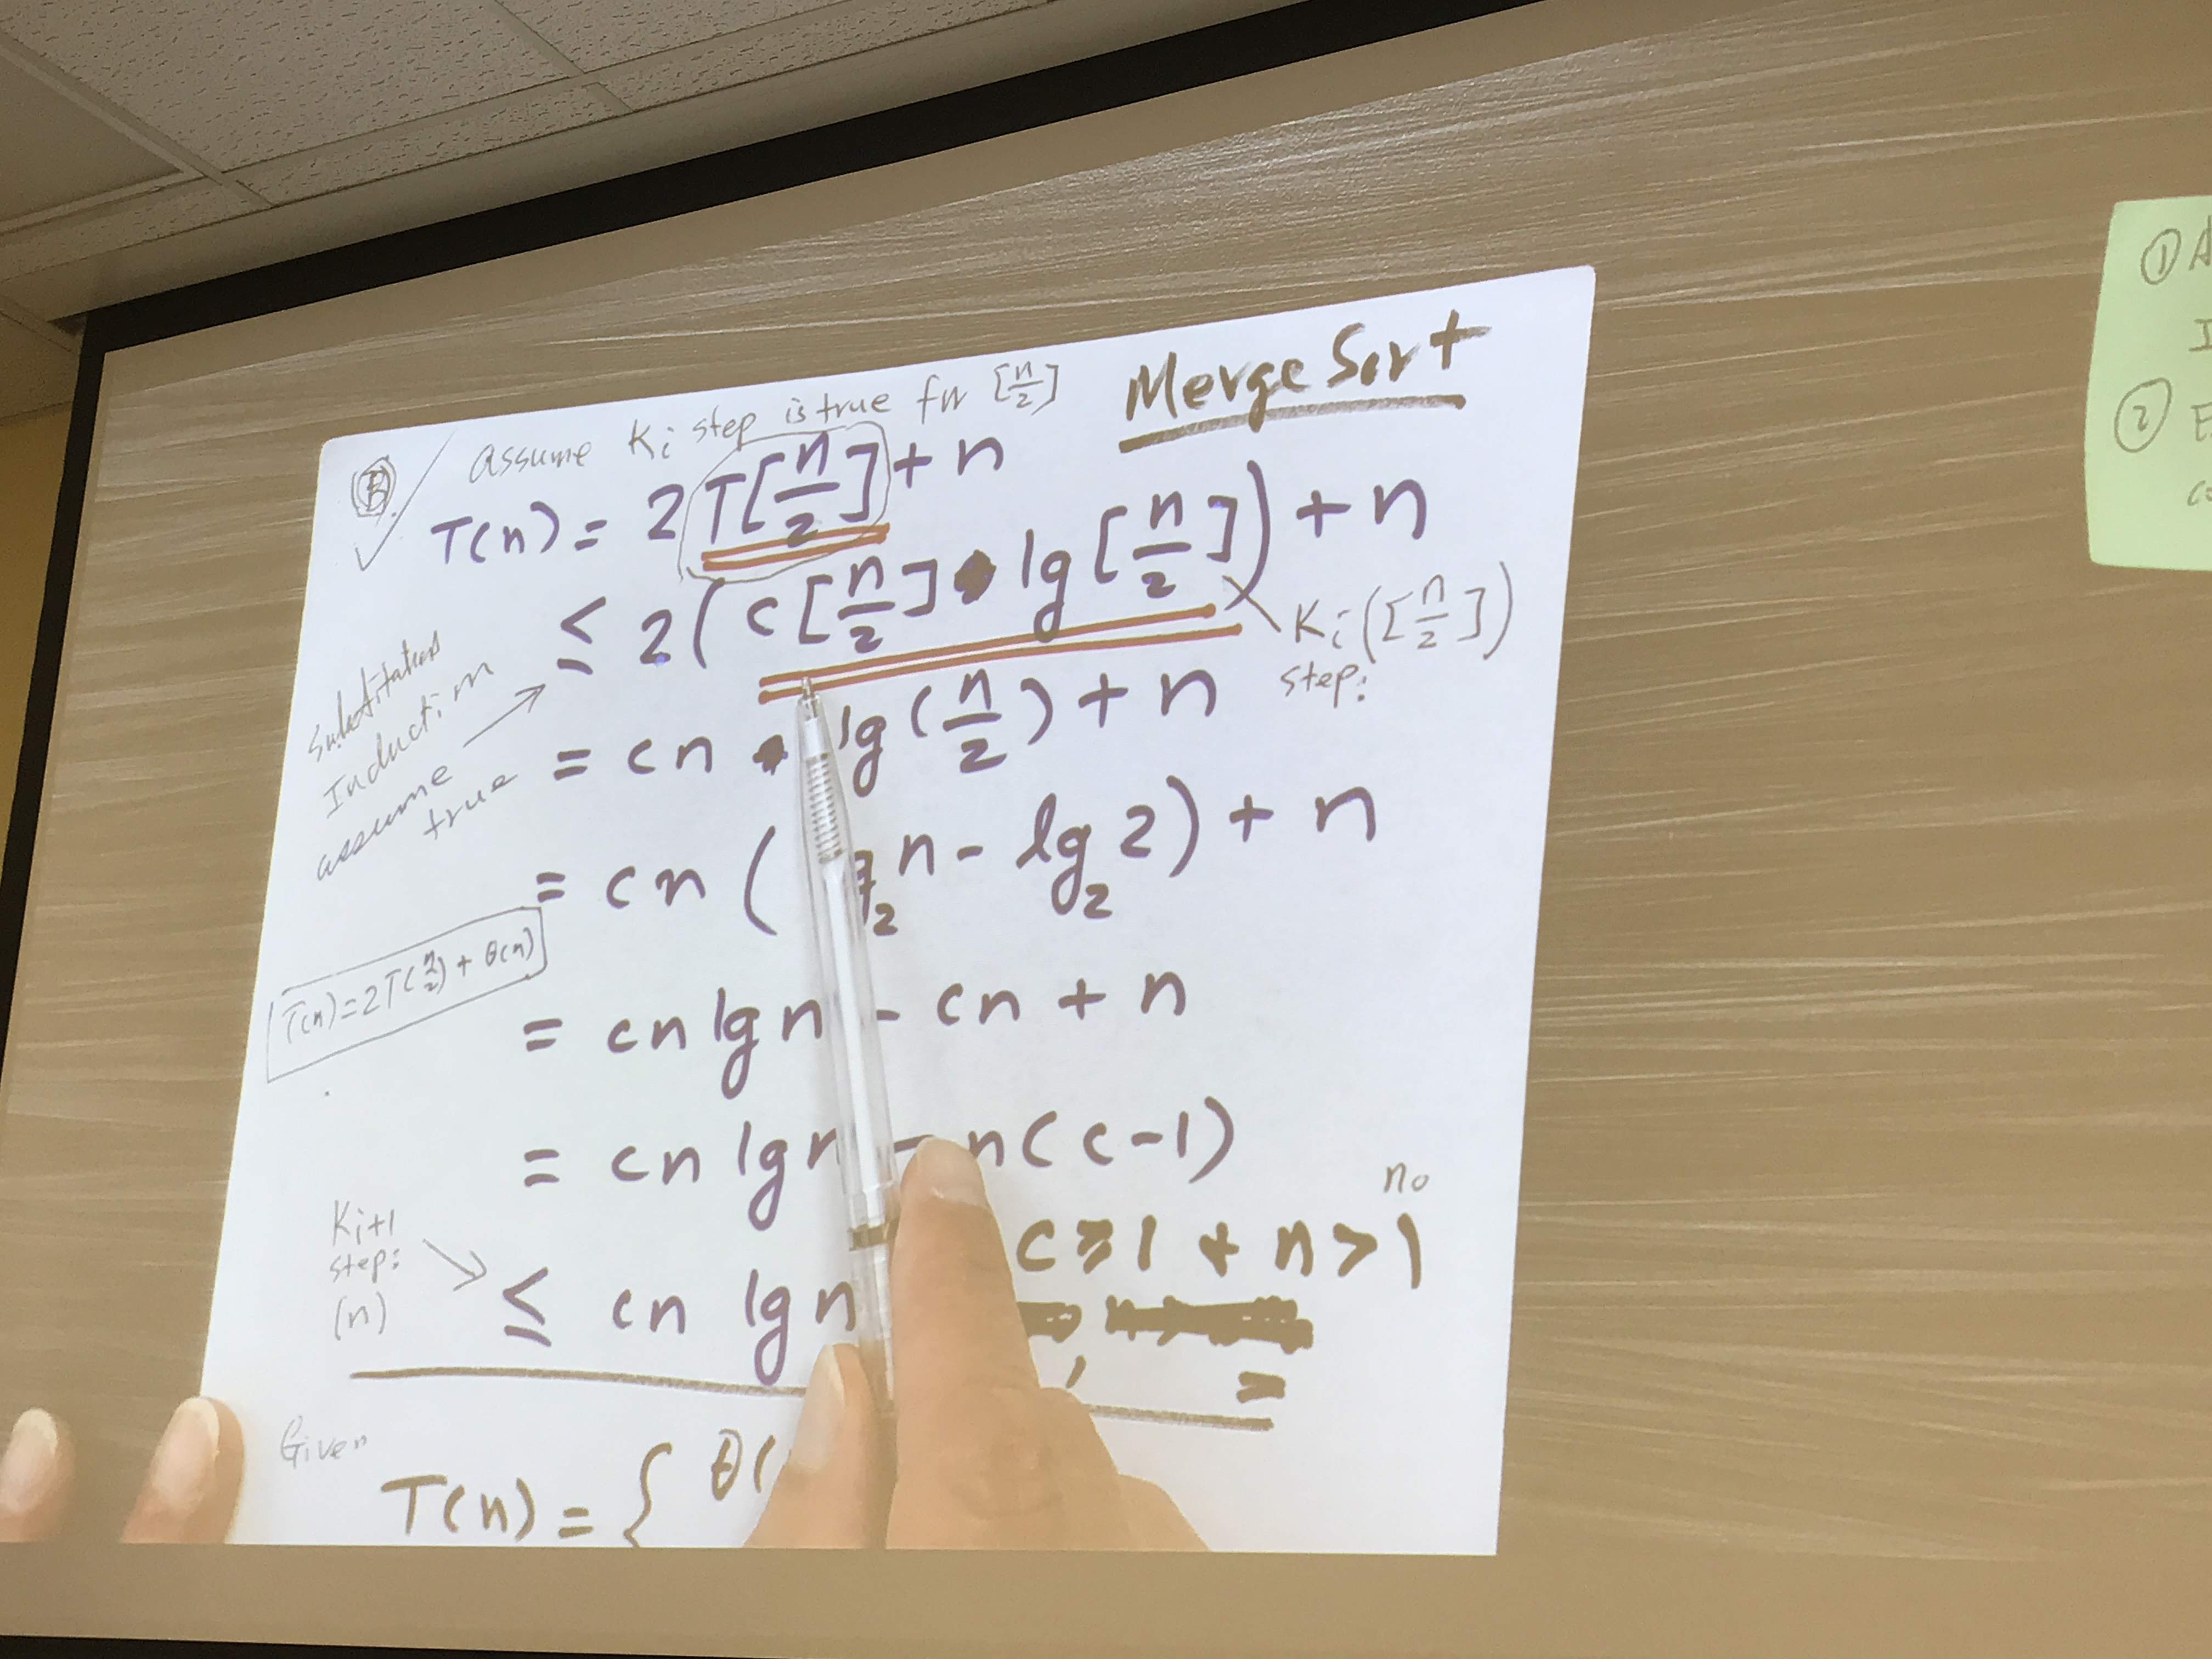 Merge Sort
B
Assume Ki step is true for [n/2]
T(n) = 2T[n/2] + n
≤ 2(c[n/2] • lg[n/2]) + n
Ki([n/2])
step:
Substitution
Induction
assume
true
= cn • lg(n/2) + n
= cn ( n - lg₂2) + n
T(n) = 2T(n/2) + θ(n)
= cn lg n - cn + n
= cn lg n - n(c-1)
n₀
c ≥ 1 + n > 1
Ki+1
step:
(n)
≤ cn lg n
, =
Given
T(n) = { θ(
① A
I
② E
co